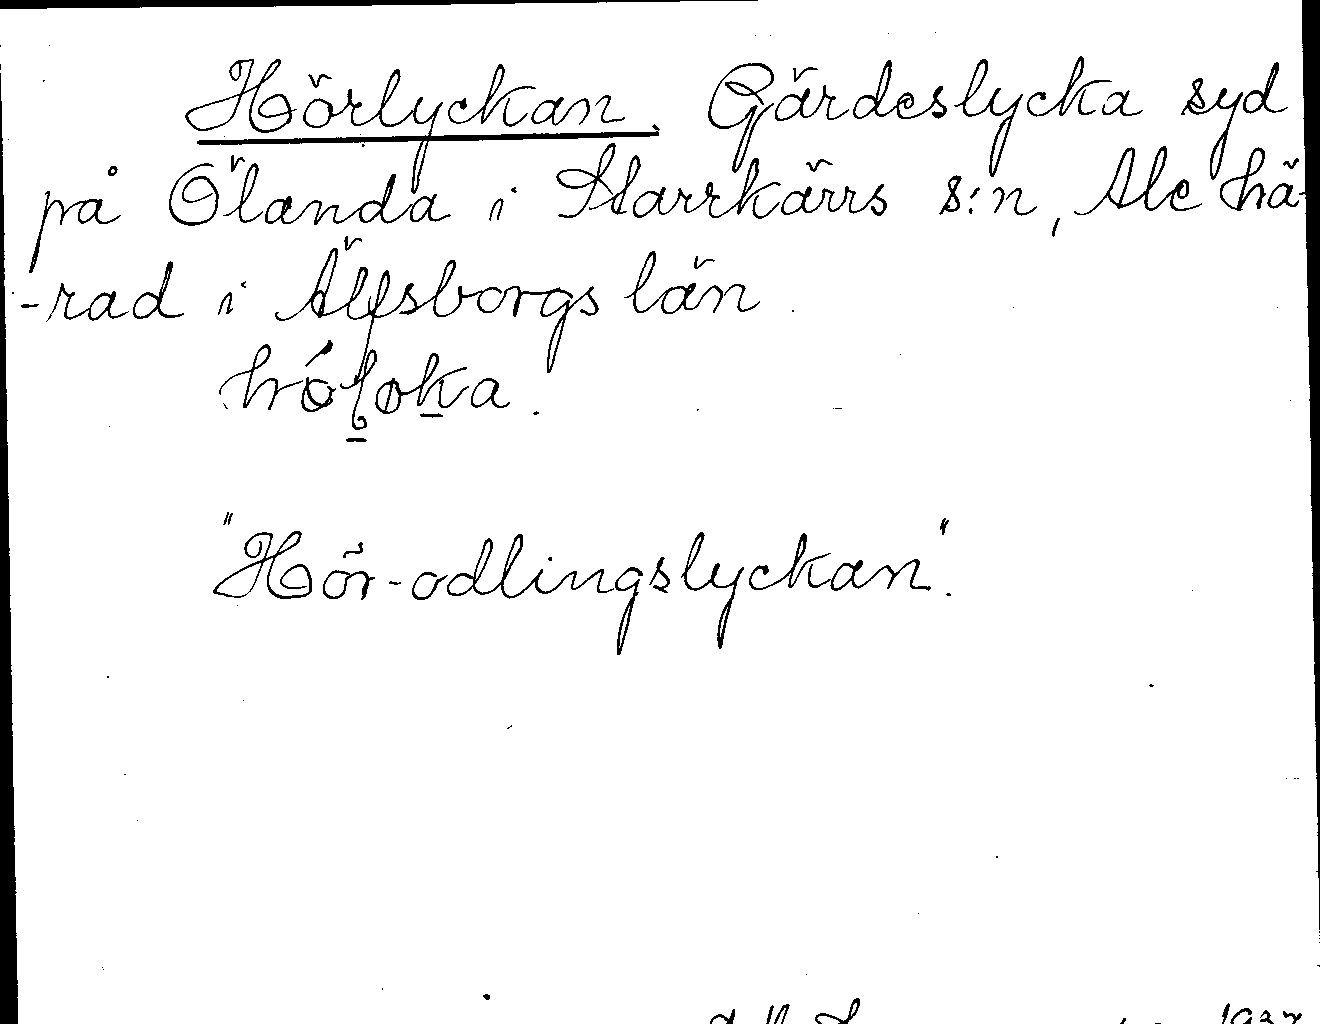 Hörlyckan. Gärdeslycka syd
på Ölanda i Starrkärrs s:n, Ale hä-
-rad i Älfsborgs län.
"Hör-odlingslyckan".